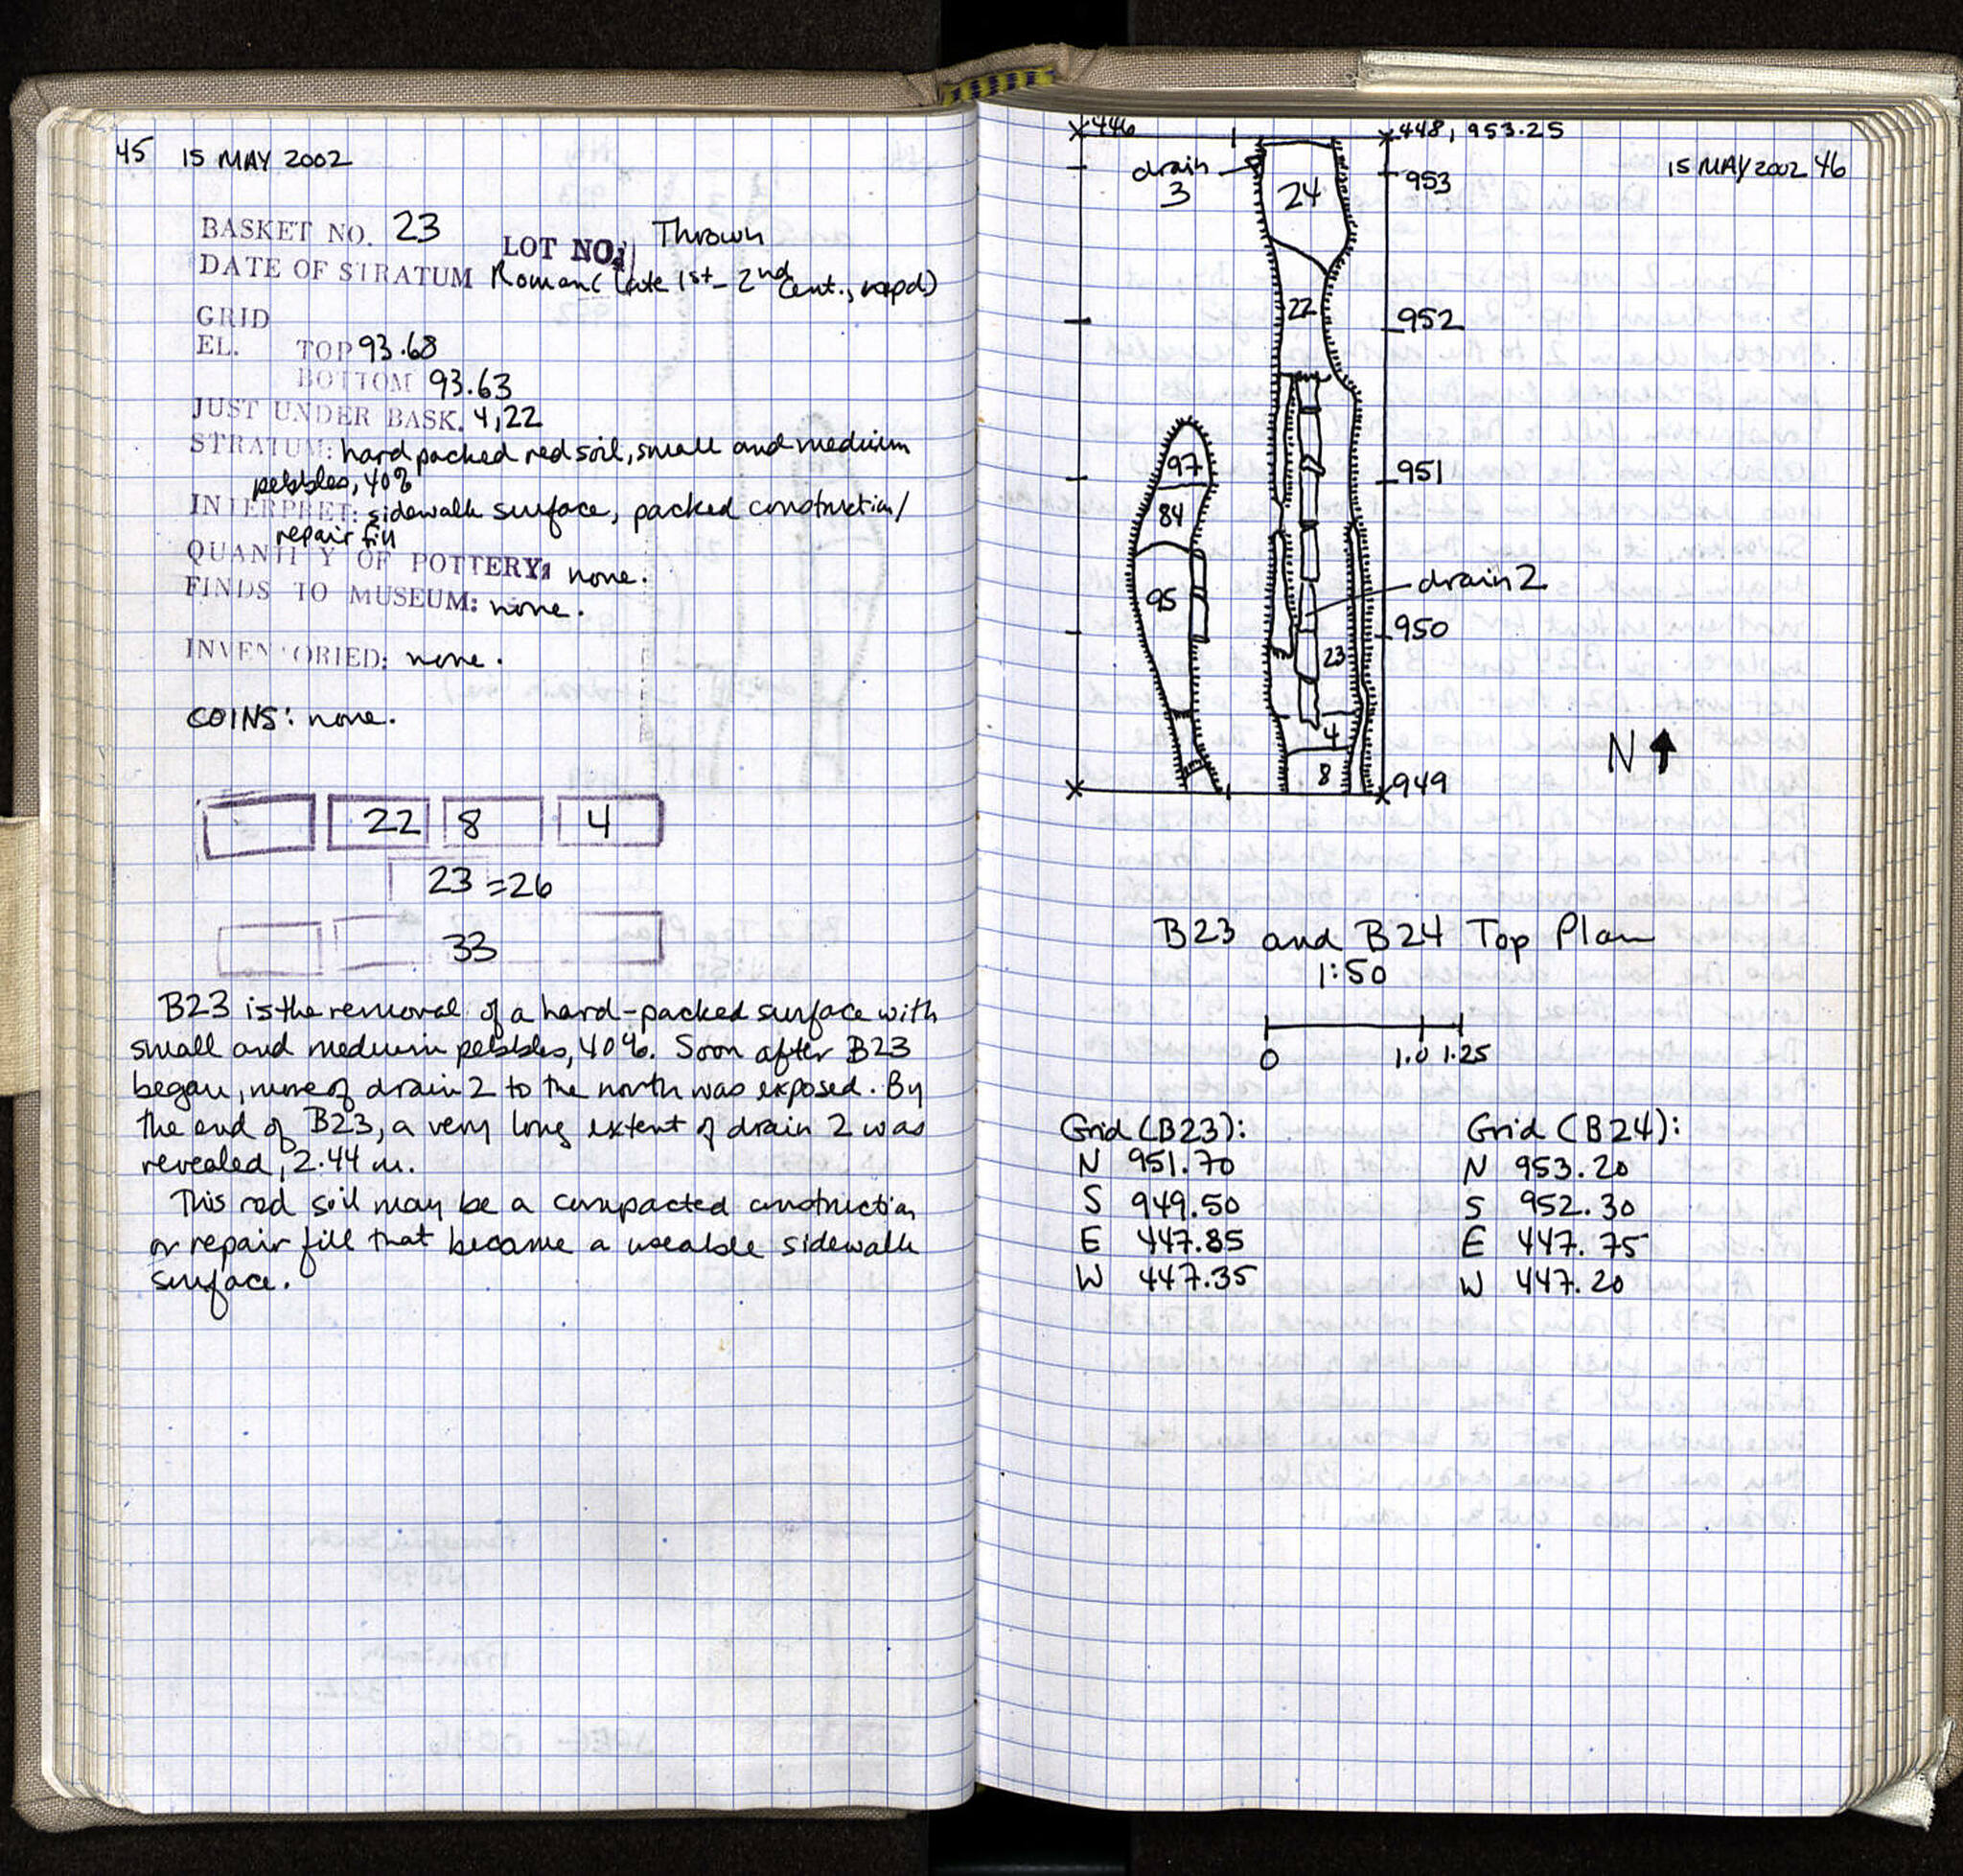 45 15 MAY 2002
BASKET NO. 23 LOT NO: Thrown
DATE OF STRATUM Roman (late 1st - 2nd cent., rapd)
GRID
EL. TOP 93.68
BOTTOM 93.63
JUST UNDER BASK. 4, 22
STRATUM: hard packed red soil, small and medium
pebbles, 40%
INTERPRET: sidewalk surface, packed construction/
repair fill
QUANTITY OF POTTERY: none.
FINDS TO MUSEUM: none.
INVENTORIED: none.
COINS: none.
22 8 4
23 = 26
33
B23 is the removal of a hard-packed surface with
small and medium pebbles, 40%. Soon after B23
began, more of drain 2 to the north was exposed. By
the end of B23, a very long extent of drain 2 was
revealed, 2.44 m.
This red soil may be a compacted construction
or repair fill that became a useable sidewalk
surface.
15 MAY 2002 46
446 448, 953.25
drain
3
24
953
22
952
97
951
84
drain 2
95
950
23
4
8
949
N
B23 and B24 Top Plan
1:50
0 1.0 1.25
Grid (B23): Grid (B24):
N 951.70 N 953.20
S 949.50 S 952.30
E 447.85 E 447.75
W 447.35 W 447.20